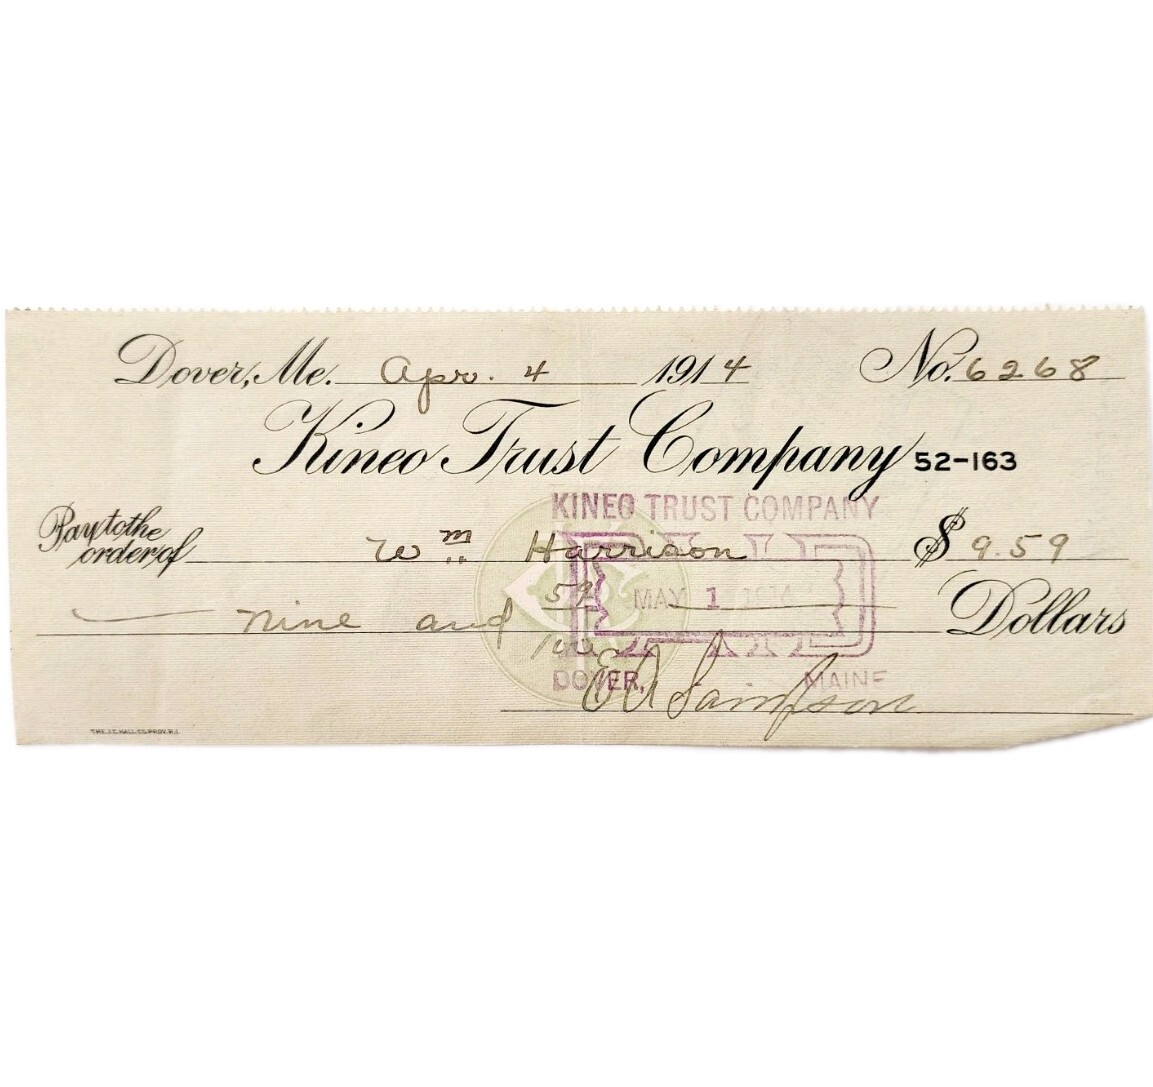 Dover, Me. Apr. 4 1914 No. 6268
Kineo Trust Company 52-163
KINEO TRUST COMPANY
Pay to the order of Wm Harrison $ 9.59
Nine and 59/100 Dollars
PAID
MAY 1 1914
DOVER, MAINE
E A Sampson
THE J.C. HALL CO. PROV. R.I.